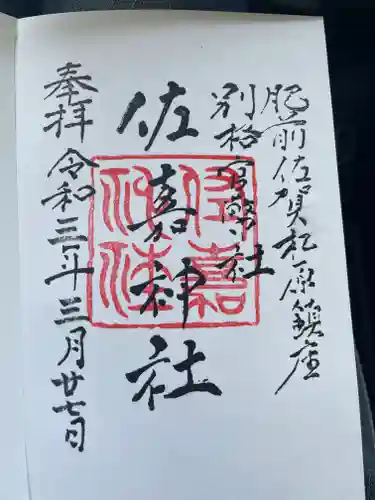 肥前佐賀松原鎮座
別格官幣社
佐嘉神社
佐嘉神社
奉拝 令和三年三月廿七日